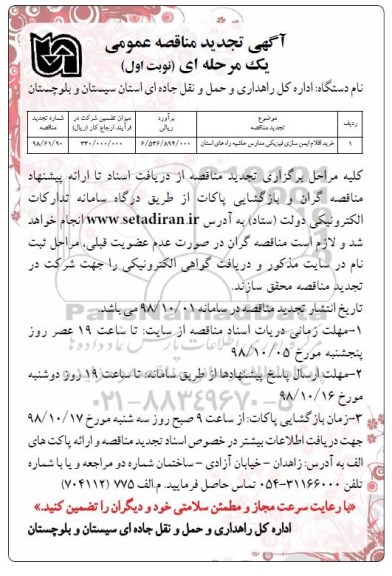 آگهی تجدید مناقصه عمومی
یک مرحله ای (نوبت اول)
نام دستگاه: اداره کل راهداری و حمل و نقل جاده ای استان سیستان و بلوچستان
ردیف موضوع تجدید مناقصه برآورد ریالی میزان تضمین شرکت در فرآیند ارجاع کار (ریال) شماره تجدید مناقصه
۱ خرید اقلام ایمن سازی فیزیکی مدارس حاشیه راه های استان ۶/۵۳۶/۸۹۴/۰۰۰ ۳۳۰/۰۰۰/۰۰۰ ۹۸/۶۱/۹۰
کلیه مراحل برگزاری تجدید مناقصه از دریافت اسناد تا ارائه پیشنهاد
مناقصه گران و بازگشایی پاکات از طریق درگاه سامانه تدارکات
الکترونیکی دولت (ستاد) به آدرس www.setadiran.ir انجام خواهد
شد و لازم است مناقصه گران در صورت عدم عضویت قبلی، مراحل ثبت
نام در سایت مذکور و دریافت گواهی الکترونیکی را جهت شرکت در
تجدید مناقصه محقق سازند.
تاریخ انتشار تجدید مناقصه در سامانه ۹۸/۱۰/۰۱ می باشد.
۱-مهلت زمانی دریات اسناد مناقصه از سایت: تا ساعت ۱۹ عصر روز
پنجشنبه مورخ ۹۸/۱۰/۰۵
۲-مهلت ارسال پاسخ پیشنهادها از طریق سامانه: تا ساعت ۱۹ روز دوشنبه
مورخ ۹۸/۱۰/۱۶
۳-زمان بازگشایی پاکات: از ساعت ۹ صبح روز سه شنبه مورخ ۹۸/۱۰/۱۷
جهت دریافت اطلاعات بیشتر در خصوص اسناد تجدید مناقصه و ارائه پاکت های
الف به آدرس: زاهدان - خیابان آزادی - ساختمان شماره دو مراجعه و یا با شماره
تلفن ۳۱۱۶۶۰۰۰-۰۵۴ تماس حاصل فرمایید. م.الف ۷۷۵ (۷۰۴۱۱۲)
«با رعایت سرعت مجاز و مطمئن سلامتی خود و دیگران را تضمین کنید.»
اداره کل راهداری و حمل و نقل جاده ای سیستان و بلوچستان
۰۲۱-۸۸۳۴۹۶۷۰-۵